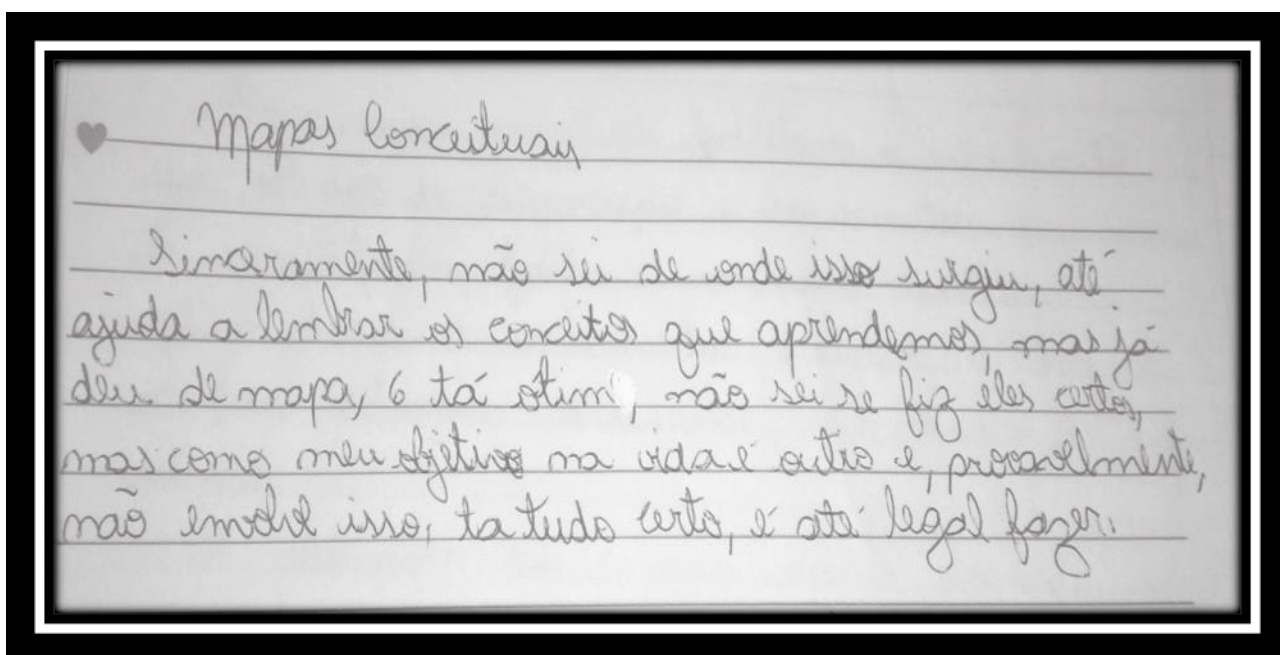 Mapas Conceituais
Sinceramente, não sei de onde isso surgiu, até
ajuda a lembrar os conceitos que aprendemos, mas já
deu de mapa, 6 tá ótim, não sei se fiz eles certos,
mas como meu objetivo na vida é outro e, provavelmente,
não envolve isso, ta tudo certo, é até legal fazer.